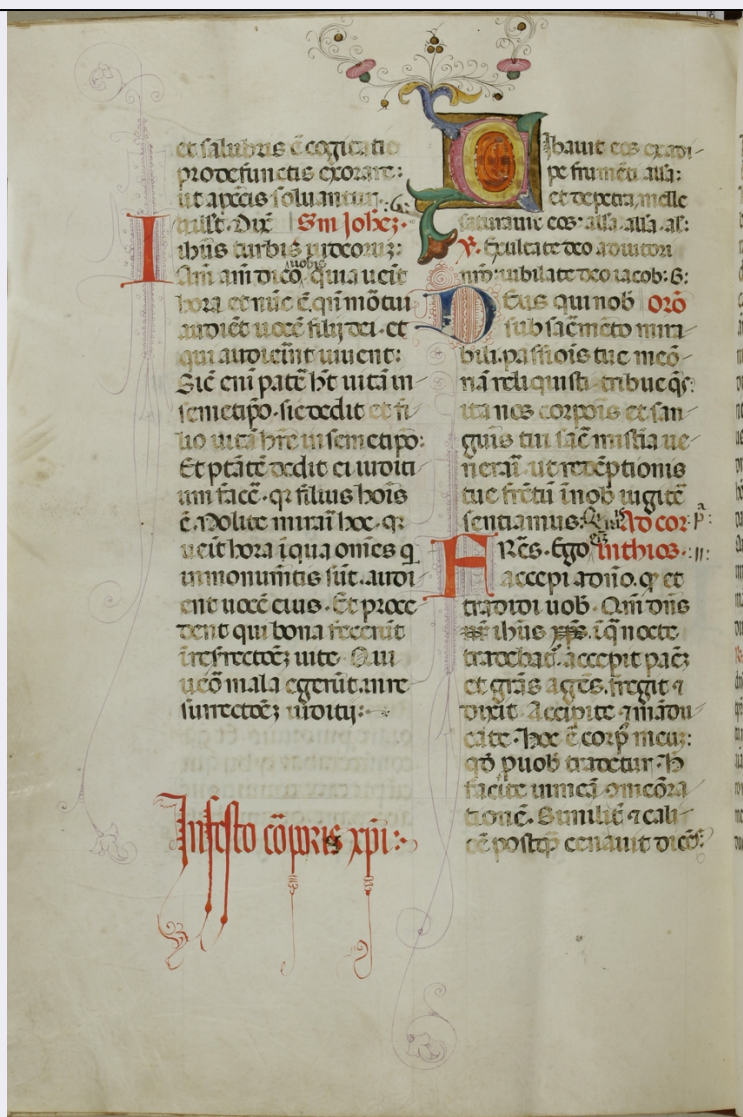 et salubris ē cogitatio
pro defunctis exorare:
ut a pctis soluantur.
In illt. Dix̄ Sm̄ Johēz.
ihus turbis iudeorūz:
Am̄ am̄ dico uobis quia ueit
hora et nūc ē qn̄ mortui
audiēt uocē filij dei. et
qui audierīnt uiuent:
Sic̄ enī pat̄ ht̄ uitā in
semetip̄o. sic dedit et fi
lio uitā hr̄e in semetip̄o:
Et ptātē dedit ei iuditi
um facē. qr filius hōis
ē. Nolite mirari hoc. qr
ueit hora ī qua omēs q
in monumētis sūt. audi
ent uocē eius. Et proce
dent qui bona fecerūt
ī resrectōēz uite. Qui
uēo mala egerūt. in re
surrectōēz iuditij:
In festo cōp̄ris xp̄i:
Cibauit eos ex adi
pe frumēti. alla:
et de petra, melle
saturauit eos. alla. alla. al:
V. Exultate deo adiutori
nr̄o. iubilate deo iacob: G:
Deus qui nob̄ Orō
sub sac̄mēto mira
bili. passiōis tue meō
riā reliquisti. tribue qs:
ita nos corpōis et san
guīs tui sac̄ mistīa ue
nerari. ut redēptionis
tue fr̄ctū ī nob̄ iugit̄
sentiamus: Qui Ad cor p̄:
FRēs. Ego inthios:
accepi a dnō. q et
tradidi uob̄. Qm̄ dn̄s
ihus ī q nocte
tradebat. accepit pāēz
et grās agēs. fregit ⁊
dixit. Accipite ⁊ mādu
cate. Hoc ē corp̄ meuz:
qd̄ p uob̄ tradetur. H
facite in meā ⁊mēōra
tionē. Similit̄ ⁊ cali
cē postq̄ cenauit dicēs: